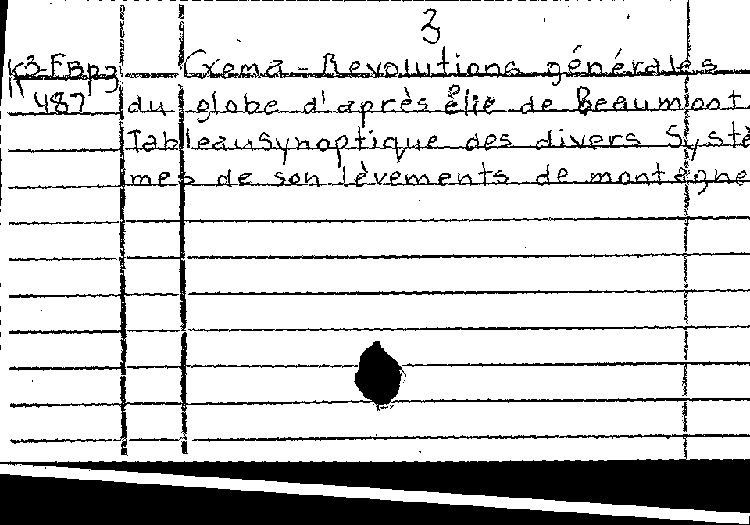 3
K3-FBp3 Crema - Revolutions générales
487 du globe d'après élie de Beaumont
Tableau Synoptique des divers Systè
mes de son lèvements de montagne